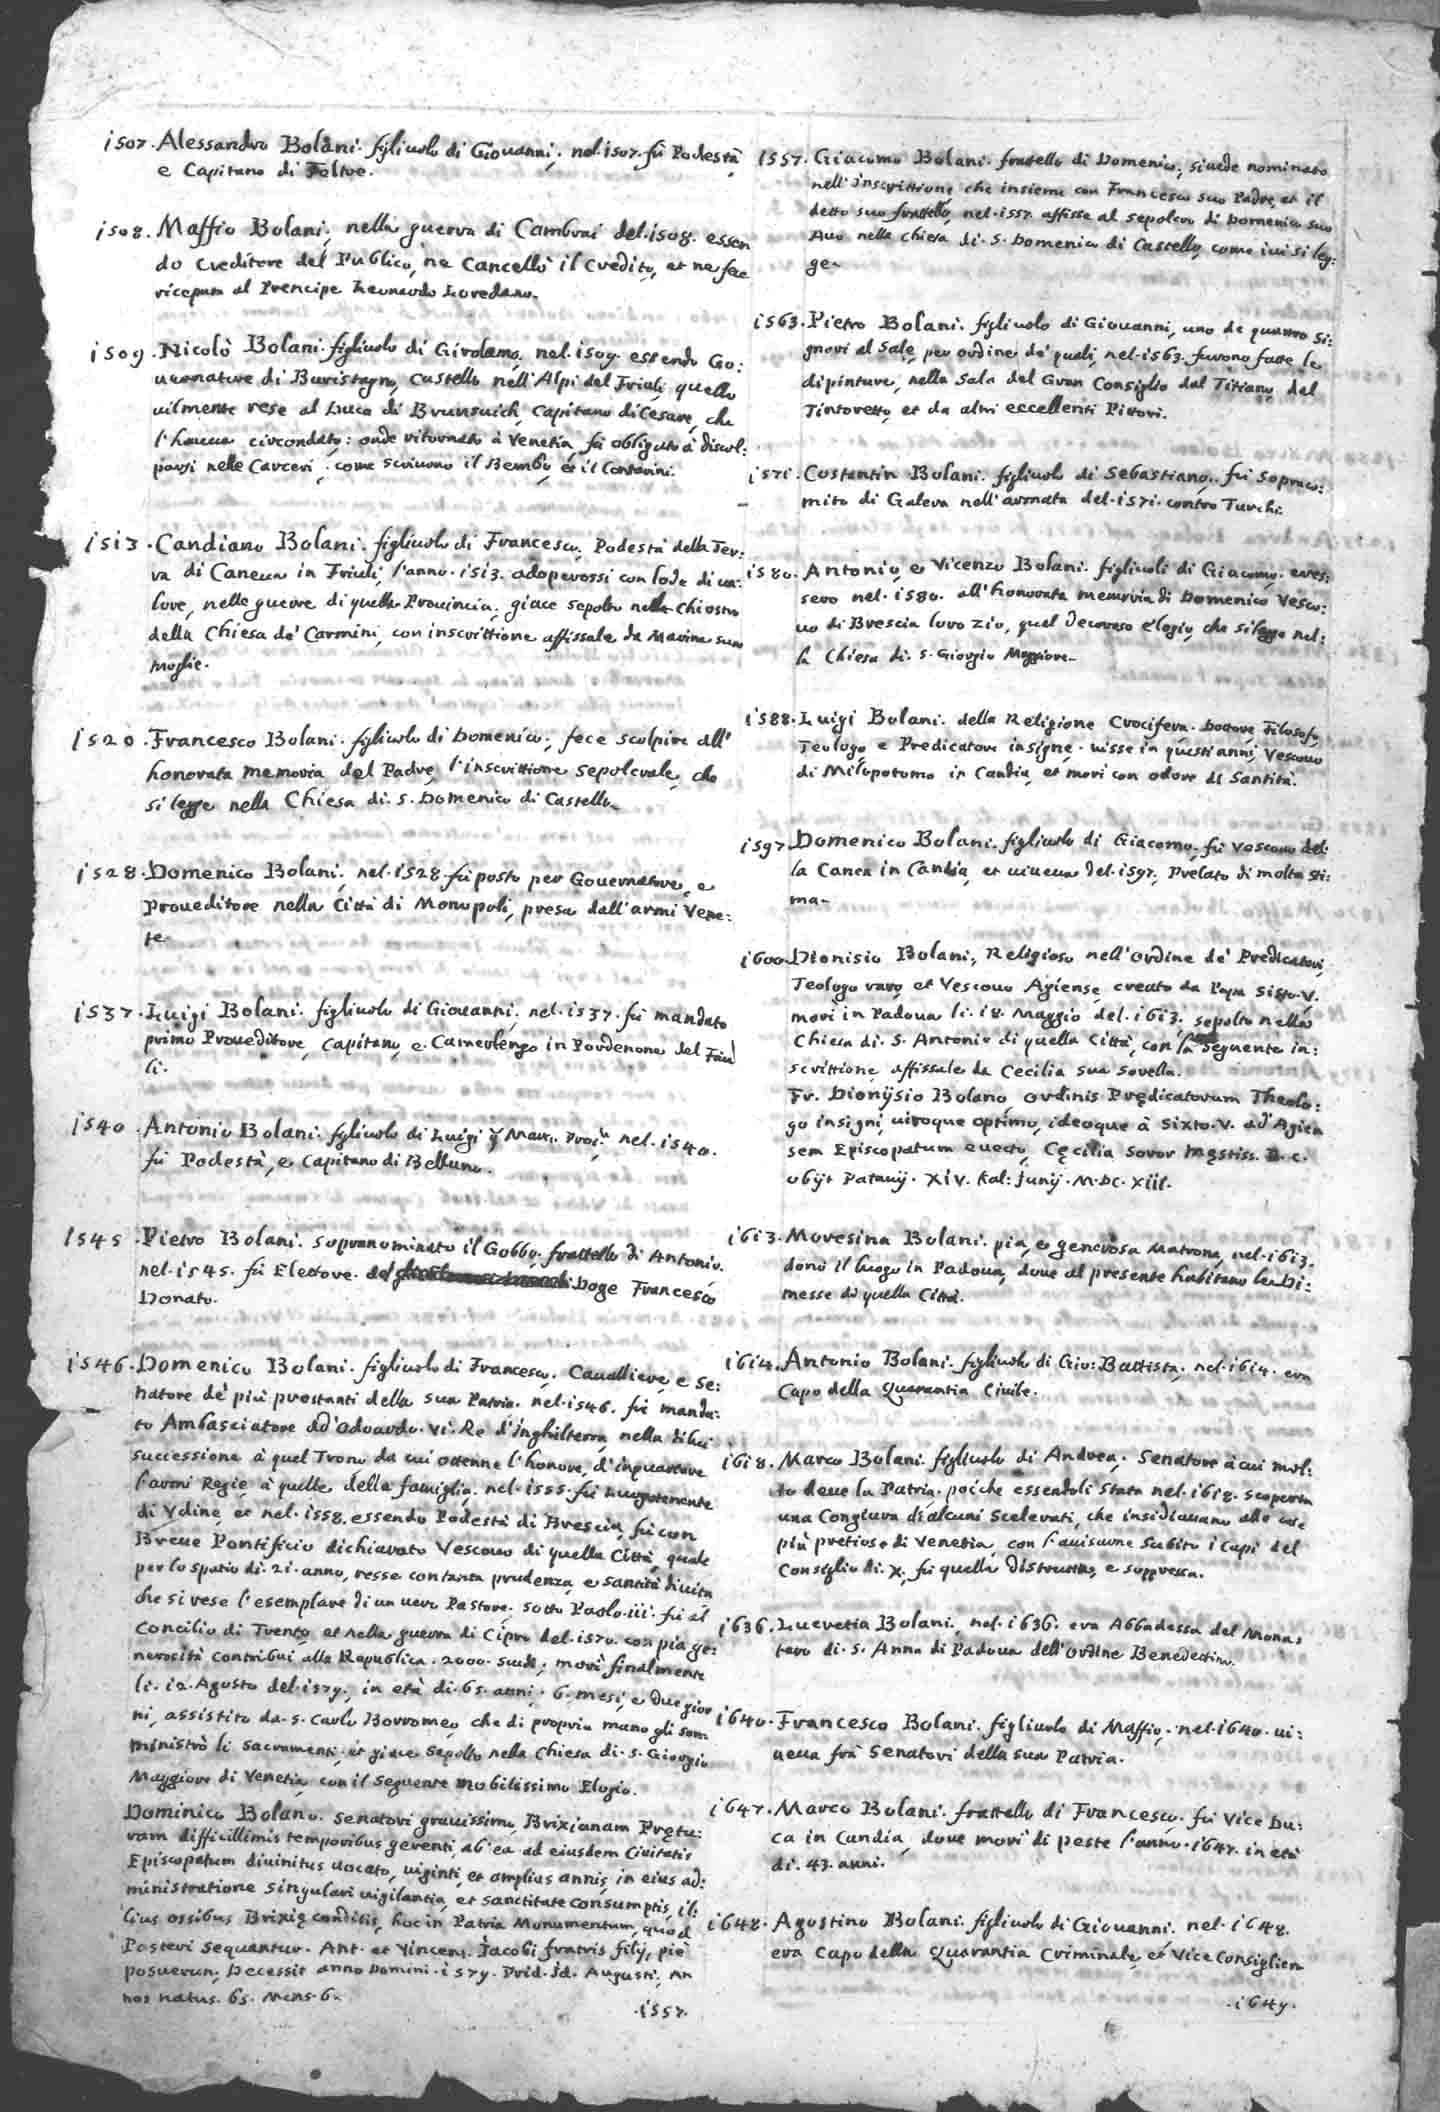 1507. Alessandro Bolani. figliuolo di Giovanni, nel. 1507. fù Podestà
e Capitano di Feltre.
1508. Maffio Bolani, nella guerra di Cambrai del. 1508. essen
do Creditore del Publico, ne Cancellò il Credito, et ne fece
riceputa al Prencipe Leonardo Loredano.
1509. Nicolò Bolani. figliuolo di Girolamo, nel. 1509. essendo Go:
uernatore di Buristagno, Castello nell'Alpi del Friuli, quello
uilmente rese al Duca di Brunsuich, Capitano di Cesare, che
l'haueua circondato: onde ritornato à Venetia, fù obligato à discol:
parsi nelle Carceri, come scriuono il Bembo, et il Contarini.
1513. Candiano Bolani. figliuolo di Francesco, Podestà della Ter:
ra di Caneua in Friuli, l'anno. 1513. adoperossi con lode di ua:
lore, nelle guerre di quella Prouincia, giace sepolto nella Chiostro
della Chiesa de' Carmini, con inscrittione affissale da Marina sua
moglie.
1520. Francesco Bolani. figliuolo di Domenico, fece scolpire all'
honorata memoria del Padre, l'inscrittione sepolcrale, che
si legge nella Chiesa di. S. Domenico di Castello.
1528. Domenico Bolani, nel. 1528. fù posto per Gouernatore, e
Proueditore nella Città di Monopoli, presa dall'armi Vene:
te.
1537. Luigi Bolani. figliuolo di Giouanni, nel. 1537. fù mandato
primo Proueditore, Capitano, e Camerlengo in Pordenone del Friu
li.
1540. Antonio Bolani. figliuolo di Luigi nel. 1540.
fù Podestà, e Capitano di Belluno.
1545. Pietro Bolani. sopranominato il Gobbo. frattello di Antonio.
nel. 1545. fù Elettore. del Doge Francesco
Donato.
1546. Domenico Bolani. figliuolo di Francesco, Cauallieve, e Se:
natore de' più prestanti della sua Patria. nel. 1546. fù manda:
to Ambasciatore ad Odoardo. VI. Re d'Inghilterra, nella di lui
successione à quel Trono da cui ottenne l'honore, d'inquartare
l'armi Regie, à quelle della famiglia, nel. 1555. fù Luogotenente
di Vdine, et nel. 1558. essendo Podestà di Brescia, fù con
Breue Pontificio dichiarato Vescouo di quella Città, quale
per lo spatio di. 21. anno, resse con tanta prudenza, e santità di uita
che si rese l'esemplare di un uero Pastore. sotto Paolo. iii. fù al
Concilio di Trento, et nella guerra di Cipro del. 1570. con pia ge:
nerosità contribuì alla Republica. 2000. scudi, morì finalmente
li. 12. Agosto del. 1579. in età di. 65. anni. 6. mesi, e due gior
ni, assistito da. S. Carlo Borromeo, che di propria mano gli som:
ministrò li sacramenti, et giace sepolto nella Chiesa di. S. Giorgio
Maggiore di Venetia, con il seguente nobilissimo Elogio.
Dominico Bolano. Senatori grauissimo, Brixianam Prętu:
ram difficillimis temporibus gerenti, ab ea ad eiusdem Ciuitatis
Episcopatum diuinitus uocato, uiginti, et amplius annis, in eius ad:
ministratione singulari uigilantia, et sanctitate consumptis, il:
lius ossibus Brixię conditis, hoc in Patria Monumentum, quod
Posteri sequantur. Ant. et Vincent. Jacobi fratris filij, pie
posuerun, Decessit anno Domini. 1579. Prid. Id. Augusti, An
nos natus. 65. Mens. 6.
.1557.
1557. Giacomo Bolani. frattello di Domenico, si uede nominato
nell'inscrittione che insieme con Francesco suo Padre, et il
detto suo frattello, nel. 1557. affisse al sepolcro di Domenico suo
Auo nella Chiesa di. S. Domenico di Castello, come iui si leg:
ge.
1563. Pietro Bolani. figliuolo di Giouanni, uno de quattro Si:
gnori al Sale, per ordine de' quali, nel. 1563. furono fatte le
dipinture, nella Sala del Gran Consiglio dal Titiano, dal
Tintoretto, et da altri eccellenti Pittori.
1571. Costantin Bolani. figliuolo di Sebastiano, fù Sopraco:
mito di Galera nell'armata del. 1571. contro Turchi.
1580. Antonio, e Vicenzo Bolani. figliuoli di Giacomo, eres:
sero nel. 1580. all'honorata memoria di Domenico Vesco:
uo di Brescia loro zio, quel decoroso elogio, che si legge nel:
la Chiesa di. S. Giorgio Maggiore.
1588. Luigi Bolani. della Religione Crocifera. Dottore, Filosofo,
Teologo, e Predicatore insigne. uisse in questi anni, Vescouo
di Milopotomo in Candia, et morì con odore di Santità.
1597. Domenico Bolani. figliuolo di Giacomo, fù Vescouo del:
la Canea in Candia, et uiueua del. 1597. Prelato di molta sti:
ma.
1600. Dionisio Bolani, Religioso nell'ordine de' Predicatori,
Teologo raro, et Vescouo Agiense, creato da Papa Sisto. V.
morì in Padoua li. 18. Maggio del. 1613. sepolto nella
Chiesa di. S. Antonio di quella Città, con la seguente in:
scrittione, affissale da Cecilia sua sorella.
Fr. Dionijsio Bolano, ordinis Prędicatorum Theolo:
go insigni, uiroque optimo, ideoque à Sixto. V. ad Agien
sem Episcopatum euecto, Cęcilia Soror Męstiss. D. C.
obijt Patauij. XIV. Kal: Junij. M.DC.XIII.
1613. Moresina Bolani. pia, e generosa Matrona, nel. 1613.
donò il luogo in Padoua, doue al presente habitano le Di:
messe di quella Città.
1614. Antonio Bolani. figliuolo di Gio: Battista, nel. 1614. era
Capo della Quarantia Ciuile.
1618. Marco Bolani. figliuolo di Andrea, Senatore à cui mol:
to deue la Patria. poiche essendoli stata nel. 1618. scoperta
una Congiura di alcuni Scelerati, che insidiauano alle cose
più pretiose di Venetia, con l'auisarne subito i Capi del
Consiglio di. X. fù quella distrutta, e soppressa.
1636. Lucretia Bolani, nel. 1636. era Abbadessa del Monas
tero di. S. Anna di Padoua dell'ordine Benedettino.
1640. Francesco Bolani. figliuolo di Maffio, nel. 1640. ui:
ueua frà Senatori della sua Patria.
1647. Marco Bolani. frattello di Francesco, fù Vice Du:
ca in Candia, doue morì di peste l'anno. 1647. in età
di. 43. anni.
1648. Agostino Bolani. figliuolo di Giouanni, nel. 1648.
era Capo della Quarantia Criminale, et Vice Consiglier
.1649.